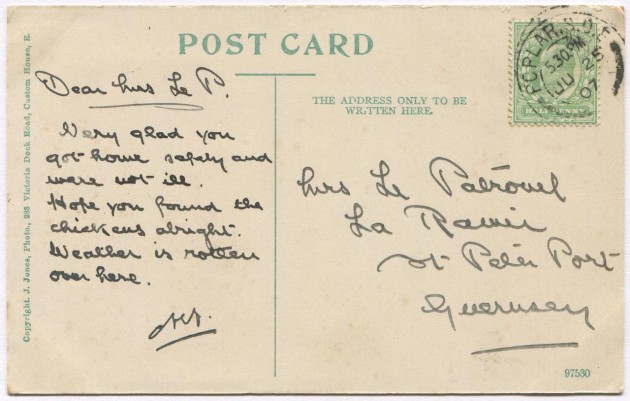 POST CARD
Dear Mrs Le P.
Very glad you
got home safely and
were not ill.
Hope you found the
chickens alright.
Weather is rotten
over here.
THE ADDRESS ONLY TO BE
WRITTEN HERE.
Mrs Le Patourel
La Ramée
St Peter Port
Guernsey
POPLAR. S.O.E
5.30PM
JU 25
07
HALFPENNY
Copyright. J. Jones, Photo., 283 Victoria Dock Road, Custom House, E.
97530